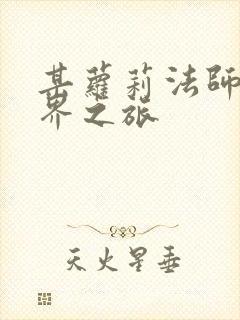 某蘿莉法師
界之旅
天火星垂